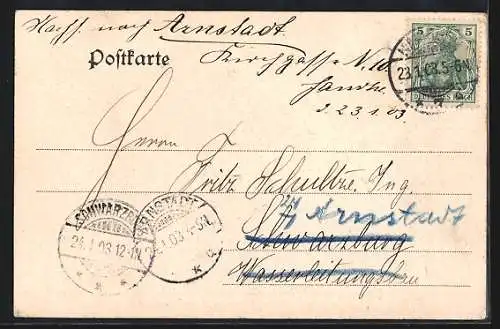 Nachf. nach Arnstadt.
Postkarte
Kirchgasse N. 10
d. 23.1.03.
5 5
23.1.03.5-6N.
Herrn
Fritz Schultze, Ing.
Arnstadt
Schwarzburg
Wasserleitungsbau
SCHWARZBURG
24.1.03 12-1N
ARNSTADT
1.03